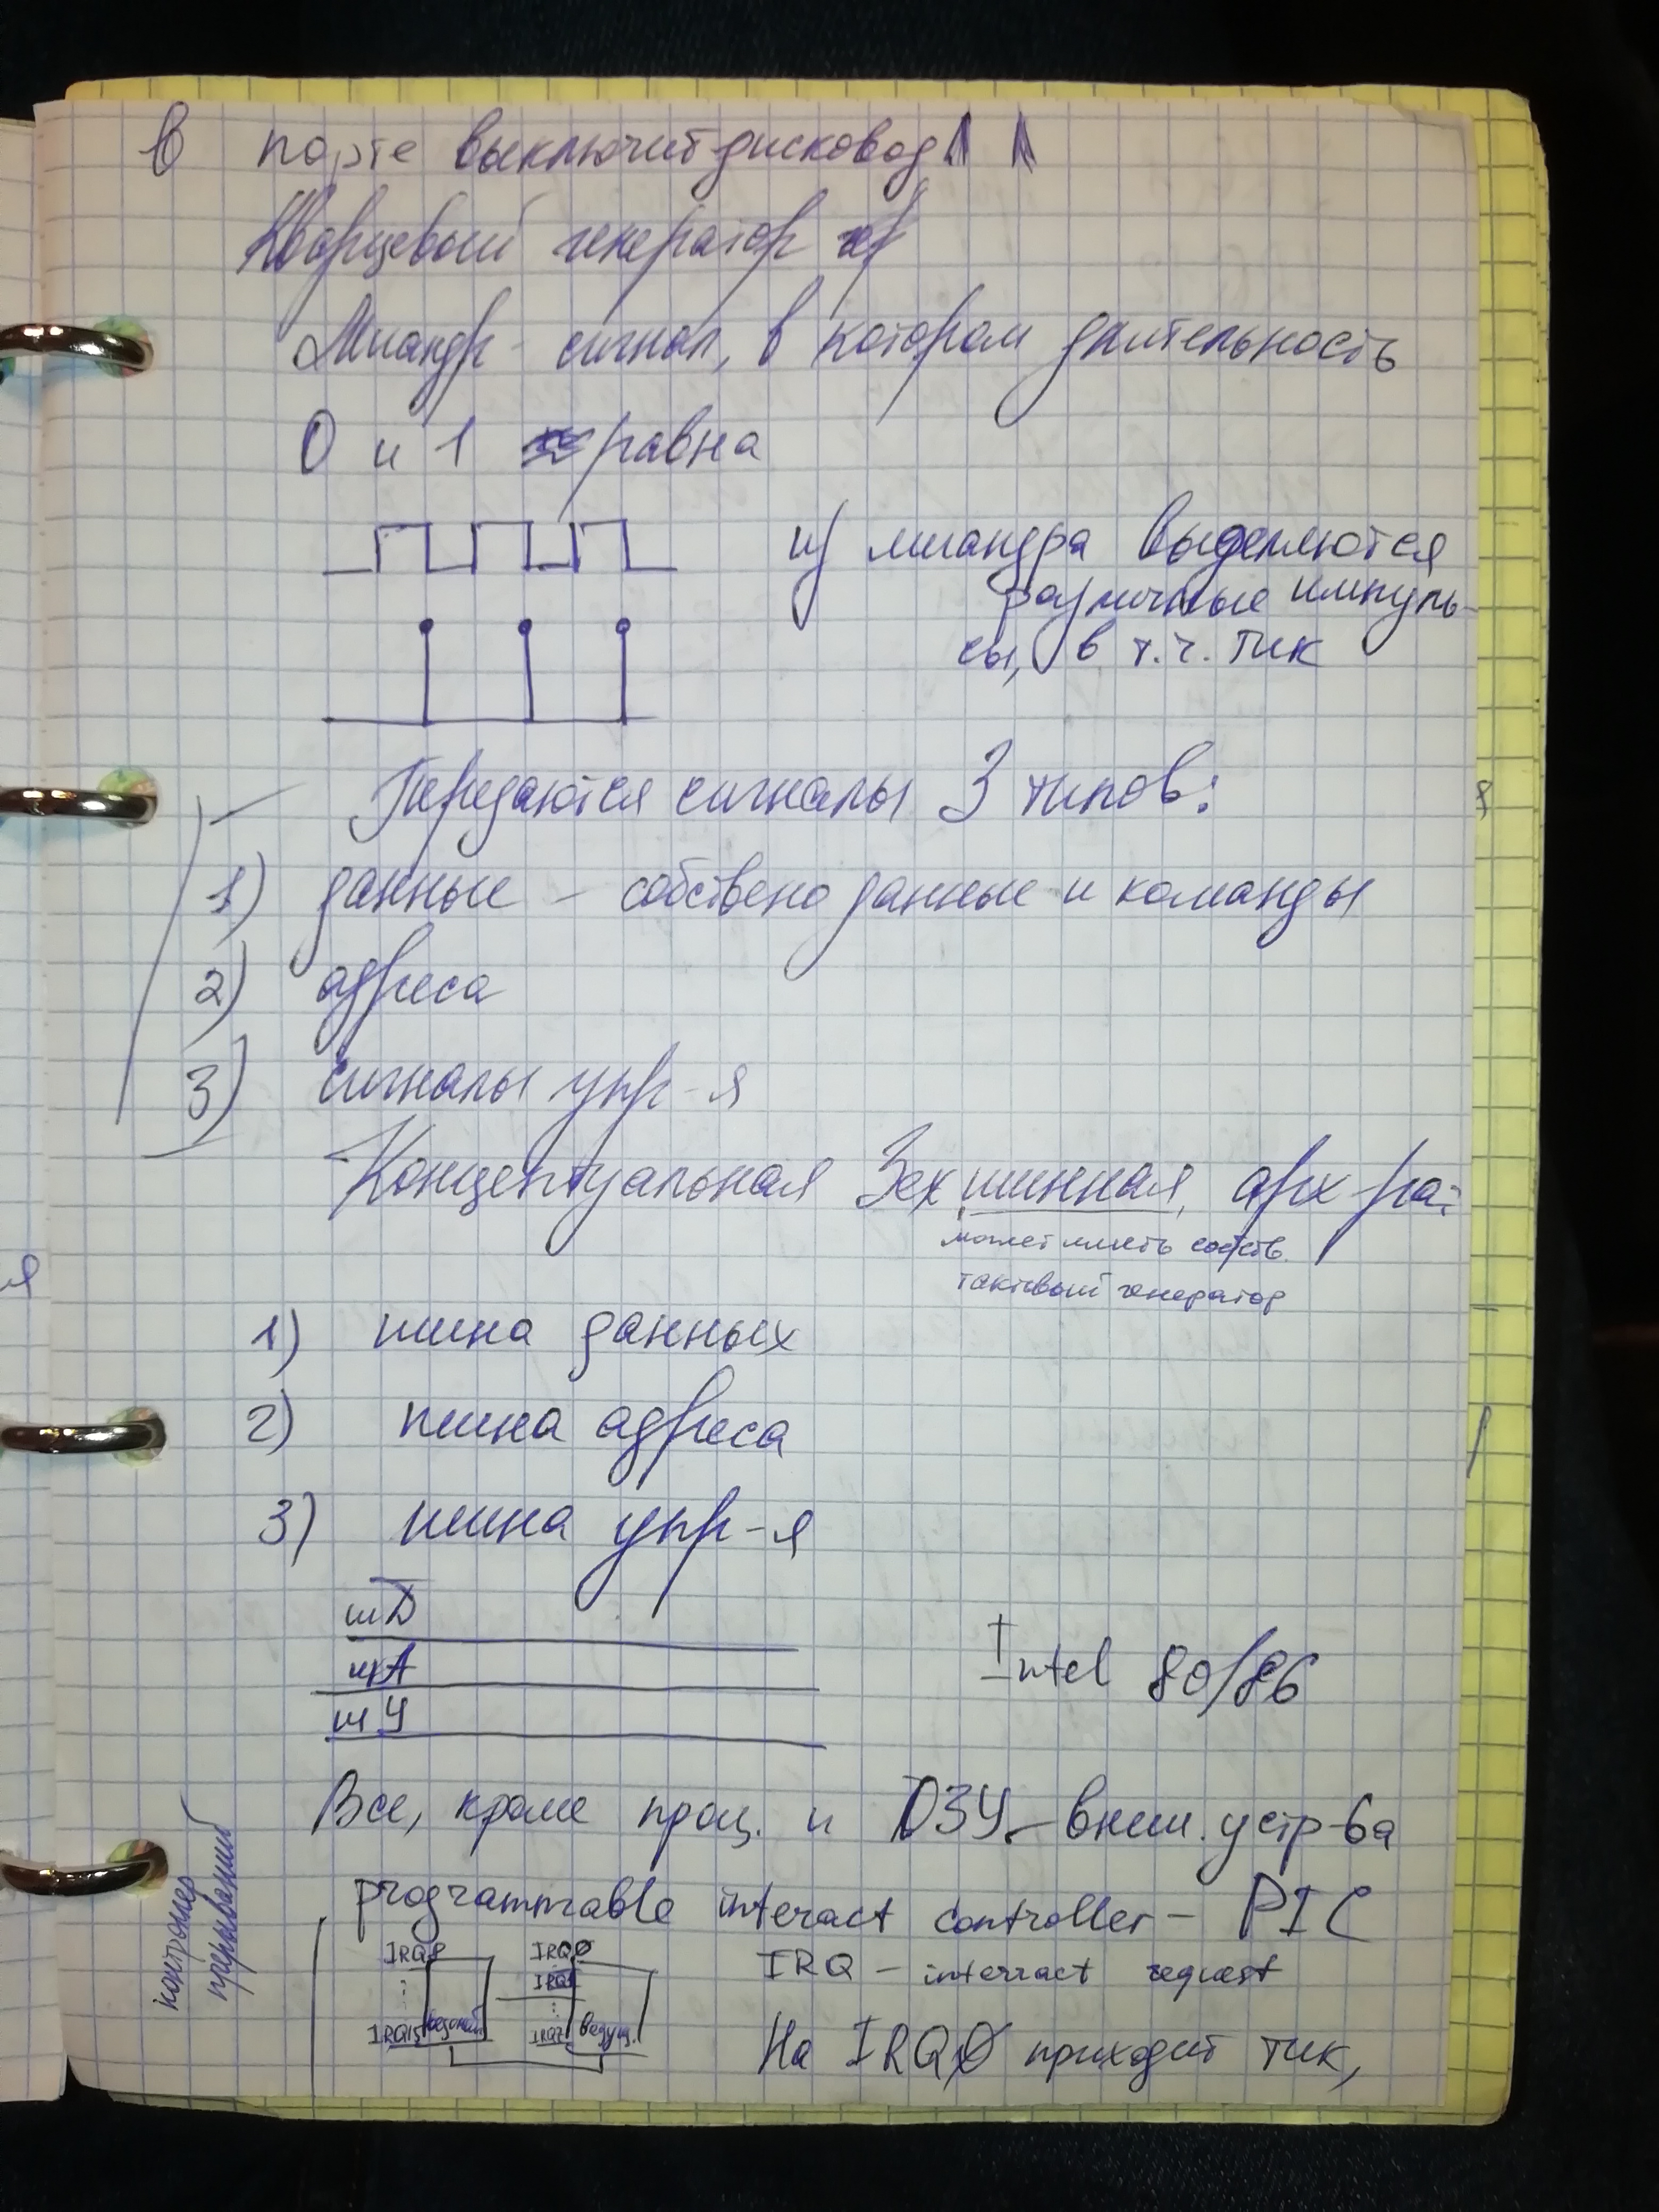 в порте выключит дисковод
Кварцевый генератор
Миандр - сигнал, в котором длительность
0 и 1 равна
из миандра выделяются
различные импуль-
сы, в т.ч. тик
Передаются сигналы 3 типов:
1) данные - собствено данные и команды
2) адреса
3) сигналы упр-я
Концептуальная 3ех шинная арх-ра:
может иметь собств.
тактовый генератор
1) шина данных
2) шина адреса
3) шина упр-я
шД
шА
шУ
Intel 80/86
Все, кроме проц. и ОЗУ - внеш. устр-ва
контролер
прерываний
programmable interact controller - PIC
IRQ8 IRQ0
IRQ1
IRQ - interract request
IRQ15 ведомый IRQ7 ведущ.
На IRQ0 приходит тик,